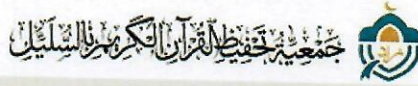 جمعية تحفيظ القرآن الكريم بالسليل